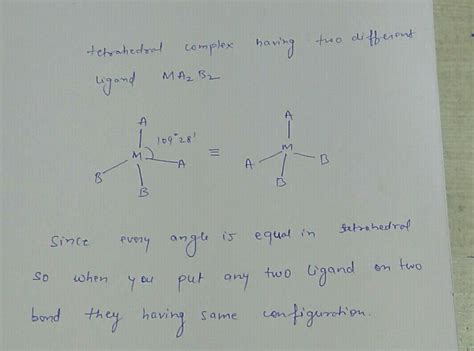 tetrahedral complex having two different
ligand MA2B2
A
109°28'
M
A
B
B
≡
A
M
A
B
B
Since every angle is equal in tetrahedral
so when you put any two ligand on two
bond they having same configuration.